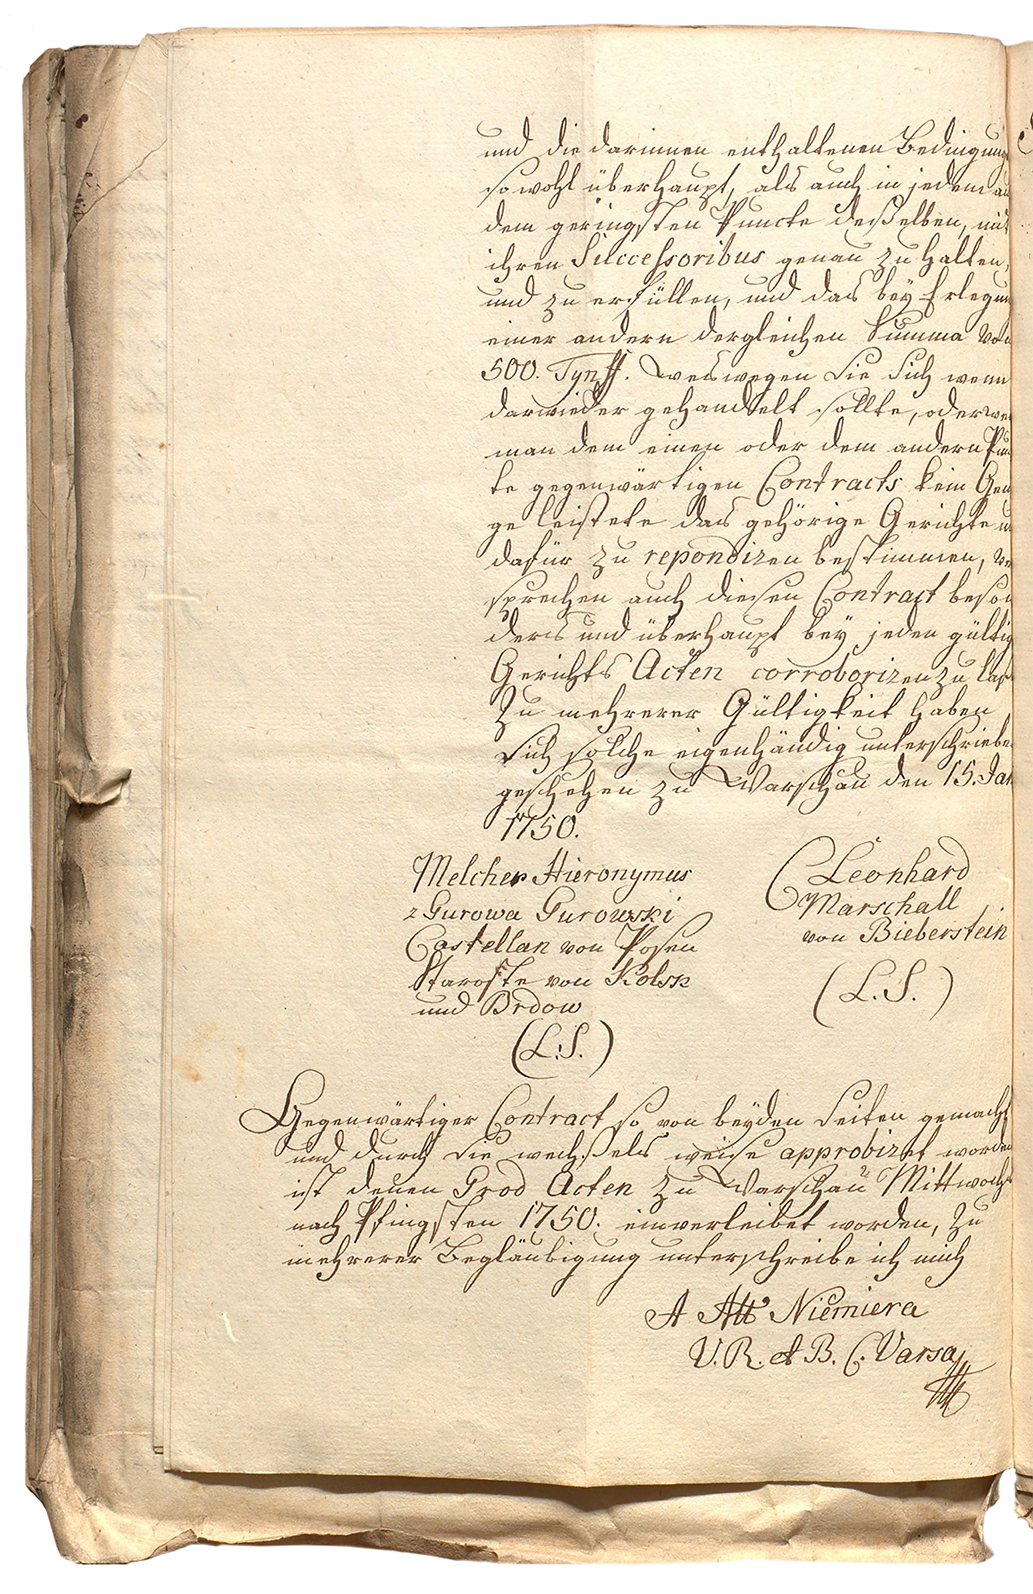 und die darinnen enthaltenen Bedingung
so wohl überhaupt, als auch in jedem
dem geringsten Puncte desselben, mit
ihren Successoribus genau zu halten,
und zu erfüllen, und das bey Erlegun
einer andern dergleichen Summa von
500. Tynff. Weswegen Sie Sich wenn
darwieder gehandelt sollte, oder we
man dem einen oder dem andern Pun
te gegenwärtigen Contracts kein Gen
ge leistete das gehörige Gerichte u
dafür zu repondiren bestimmen, ve
sprechen auch diesen Contract beson
ders und überhaupt bey jeden gültig
Gerichts Acten corroboriren zu laß
Zu mehrerer Gültigkeit haben
Sich solche eigenhändig unterschriebe
geschehen zu Warschau den 15. Jan
1750.
Melcher Hieronymus
z Gurowa Gurowski
Castellan von Posen
Staroste von Kolsk
und Brdow
(L.S.)
Leonhard
Marschall
von Bieberstein
(L.S.)
Gegenwärtiger Contract so von beyden Seiten gemacht
und durch Sie wechßels weise approbiret worden
ist denen Grod Acten zu Warschau Mittwochs
nach Pfingsten 1750. einverleibet worden, Zu
mehrerer Begläubigung unterschreibe ich mich
A Att Niemiera
V. R. et B. C. Varsa